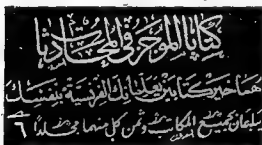 كتابا الموجز في المحادثة
هما خير كتابين يعلمانك الفرنسية بنفسك
يباعان بجميع المكاتب وثمن كل منهما مجلداً ٦